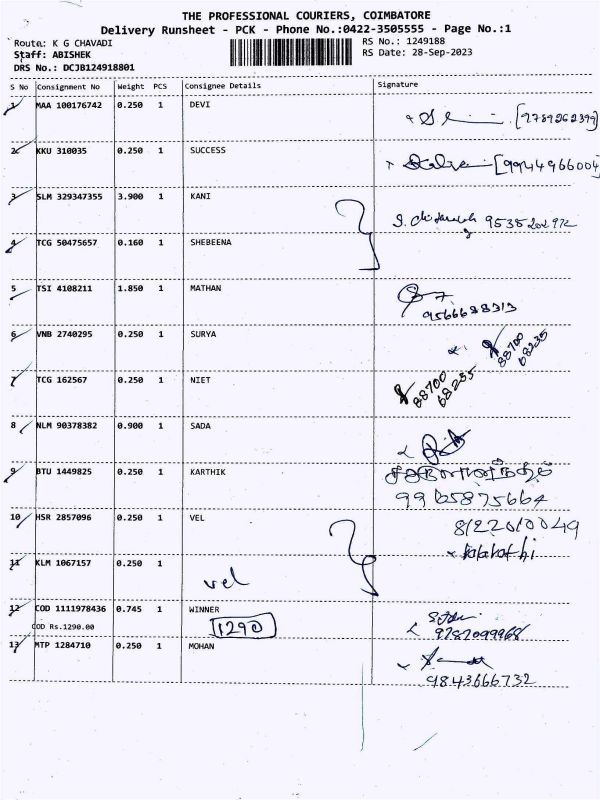 THE PROFESSIONAL COURIERS, COIMBATORE
Delivery Runsheet - PCK - Phone No.:0422-3505555 - Page No.:1
Route: K G CHAVADI
RS No.: 1249188
Staff: ABISHEK
RS Date: 28-Sep-2023
DRS No.: DCJB124918801
S No Consignment No Weight PCS Consignee Details Signature
1 MAA 100176742 0.250 1 DEVI
[9789262399]
2 KKU 310035 0.250 1 SUCCESS
[9944966004]
3 SLM 329347355 3.900 1 KANI
9535202972
4 TCG 50475657 0.160 1 SHEBEENA
5 TSI 4108211 1.850 1 MATHAN
9566688313
6 VNB 2740295 0.250 1 SURYA
88700
68235
7 TCG 162567 0.250 1 NIET
88700
68235
8 NLM 90378382 0.900 1 SADA
9 BTU 1449825 0.250 1 KARTHIK
9965875664
10 HSR 2857096 0.250 1 VEL
8122010049
11 KLM 1067157 0.250 1
vel
12 COD 1111978436 0.745 1 WINNER
COD Rs.1290.00
1290
9787099968
13 MTP 1284710 0.250 1 MOHAN
9843666732